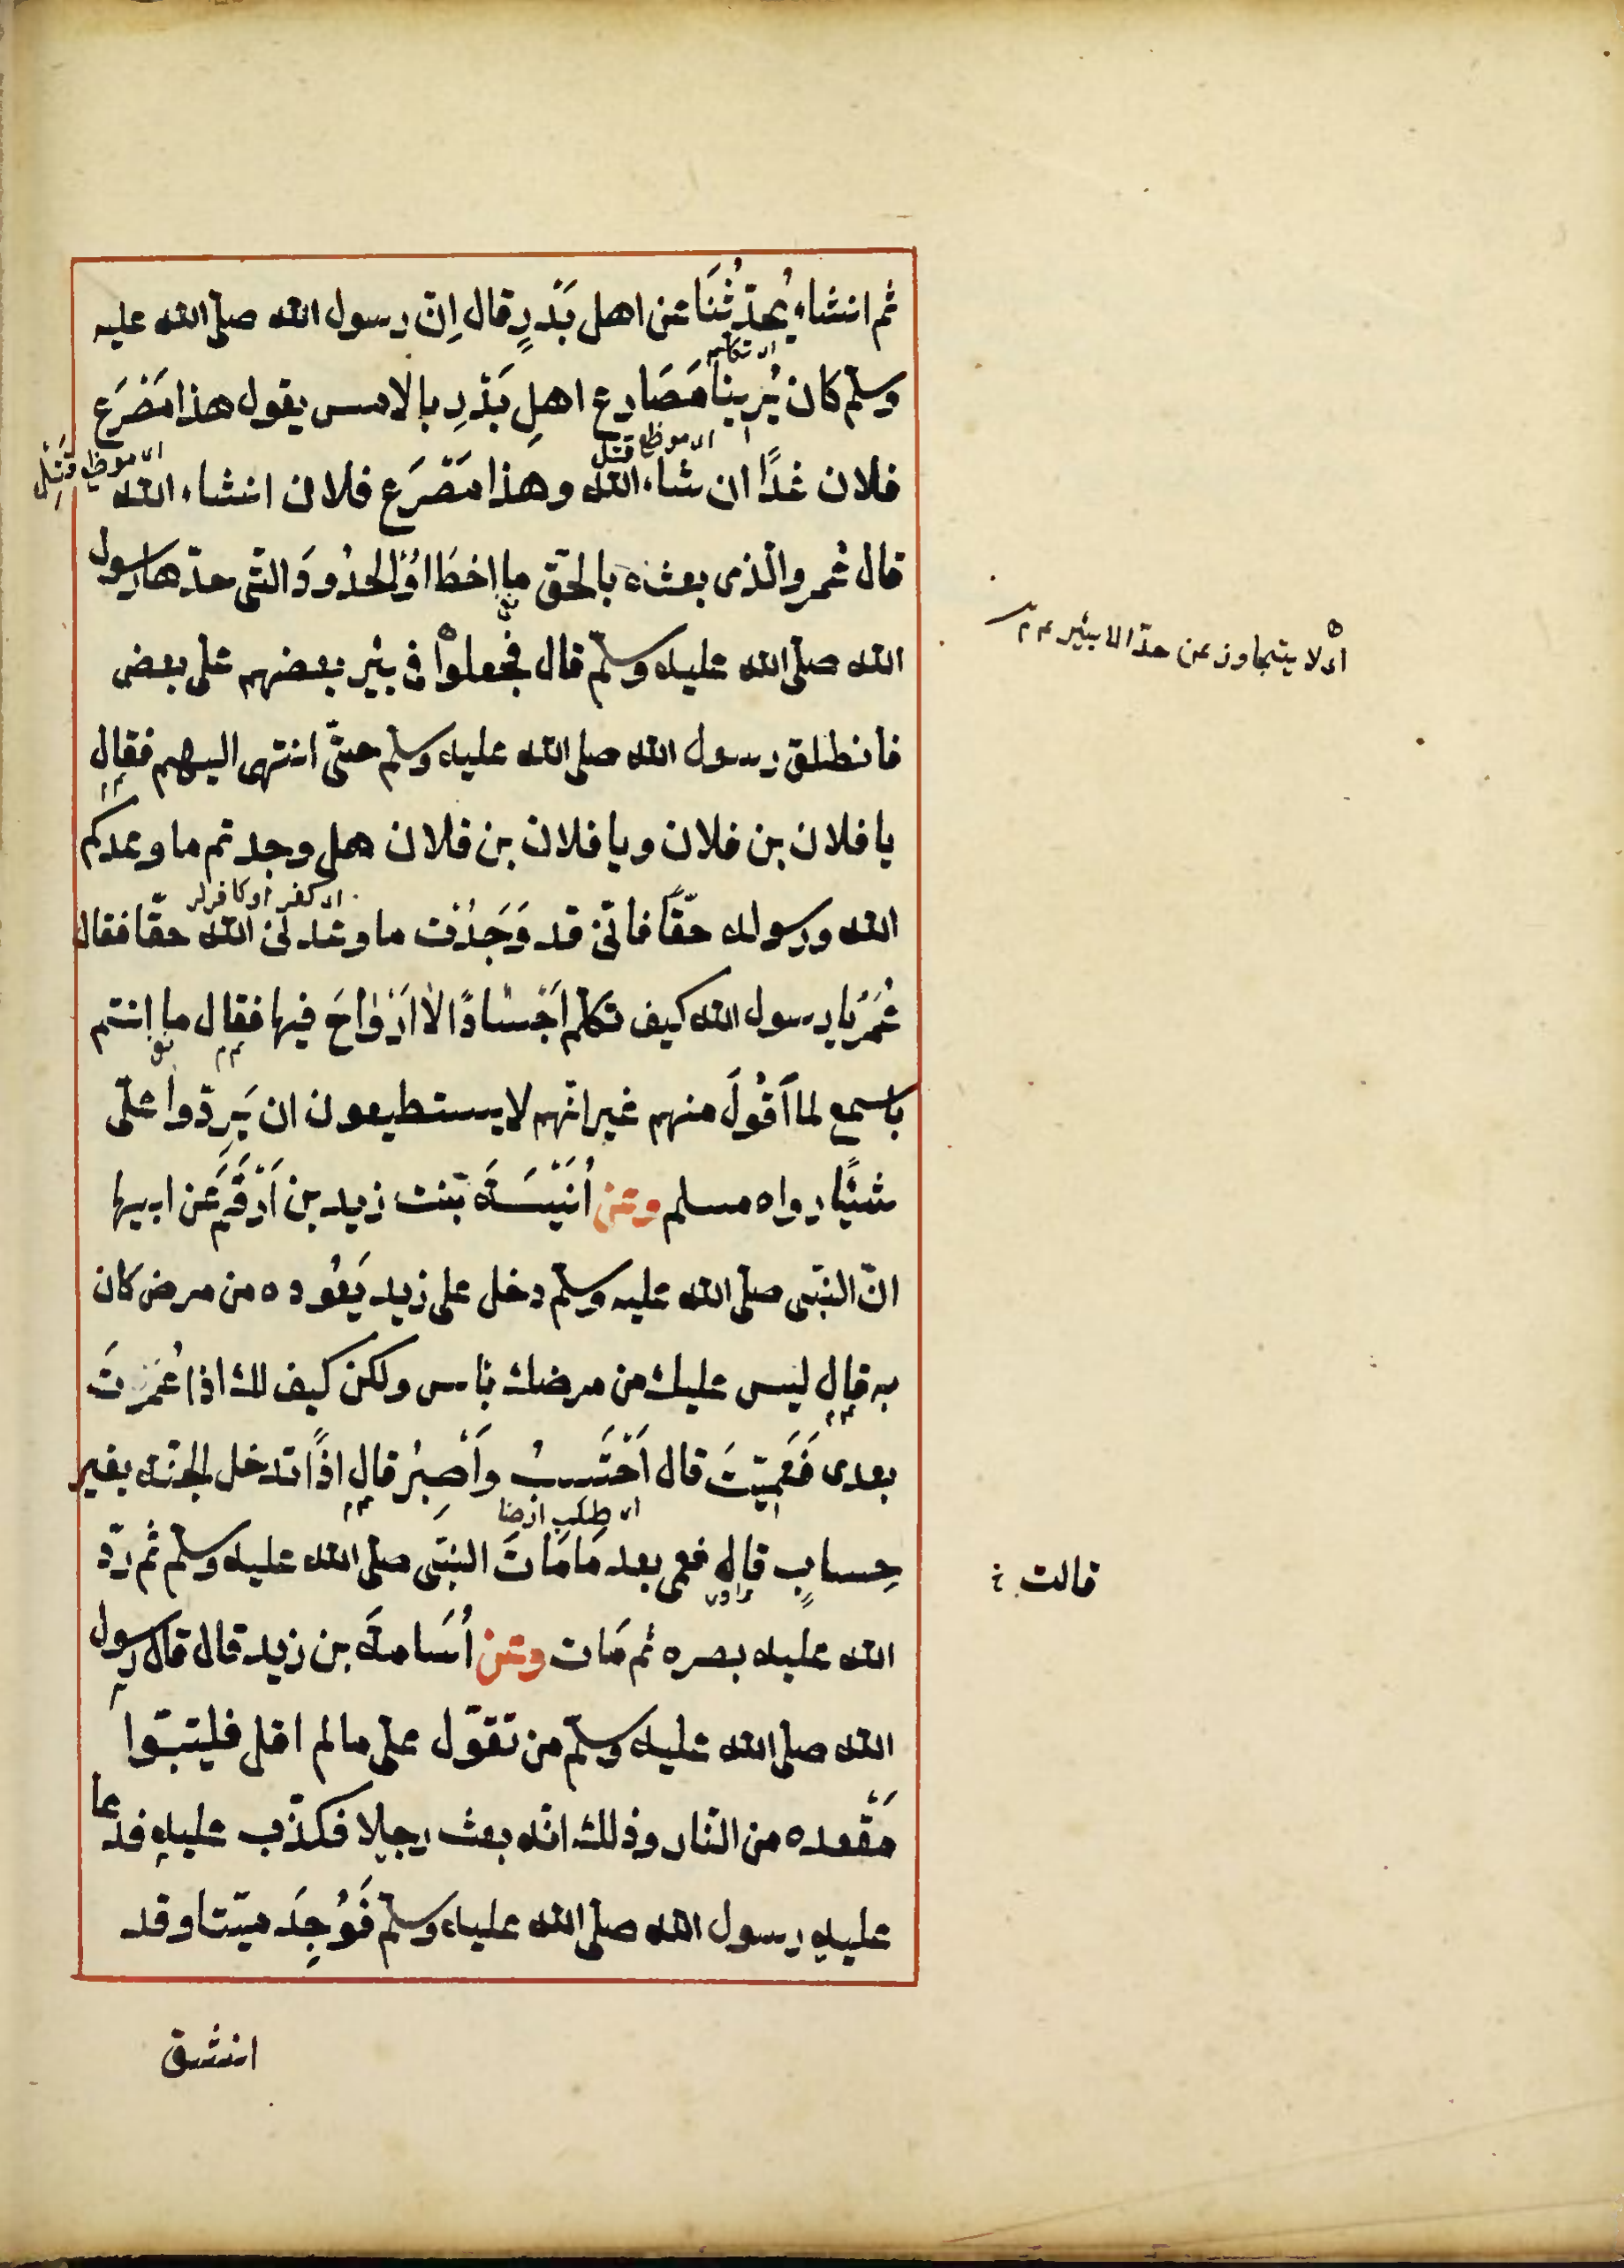 ثم انشاء يُحدّثُنَا عن اهل بَدْرٍ قال اِنّ رسول الله صلى الله عليه
وسلم كان يُرينا مَصَارع اهلِ بَدْرِ بالامس يقول هذا مَصْرَع
فلان غدًا ان شاء الله وهَذا مَصْرَع فلان انشاء الله
اى موضع قتل
اى موضع قَتْل
قال عُمر والّذى بعثه بالحقّ ما اخطَاؤُا الحدُودَ التّى حدّها رسول
الله صلى الله عليه وسلّم قال فجُعلوْا فى بئِر بعضهم على بعض
اى لا يتجاوز عن حدّ الا بيّر
فانطلق رسول الله صلى الله عليه وسلم حتّى انتهى اليهم فقال
يا فلان بن فلان ويا فلان بن فلان هل وجدتم ما وعدكم
الله ورسوله حقّاً فانّى قد وَجَدْت ما وعدنى الله حقّا فقال
عُمَرُ يا رسول الله كيف تكلّم اَجْسَادًا لا اَرْوٰاحَ فيها فقال ما انتم
باسمع لما اَقُولَ منهم غير انّهم لا يستطيعون ان يَرِدّوا علىّ
شَيْئًا رواه مسلم وعن اُنَيْسَةَ بنت زيد بن اَرْقَمَ عن ابيها
انّ النبّى صلّى الله عليه وسلم دخل على زيد يَعُوده من مرض كان
به قال ليس عليك من مرضك بأس ولكن كيف لك اذا عُمّرتَ
بعدى فَعَمِيْتَ قال اَحْتَسبُ واَصْبِرُ قال اذًا تدخل الجنّة بغير
اى طلب ارضا
حِساب قال فعمى بعد مَا مَاتَ النبىّ صلى الله عليه وسلم ثُم ردّ
قالت خ
الله عليه بصره ثم مَات وعن اُسَامة بن زيد قال قال رسول
الله صلى الله عليه وسلّم من تقوّل علىّ ما لم اقل فليتبوّأ
مَقْعده من النّار وذلك انّه بعث رجلا فكذّب عليه فدعا
عليه رسول الله صلى الله عليه وسلم فَوُجِدَ ميّتا وقد
انشق